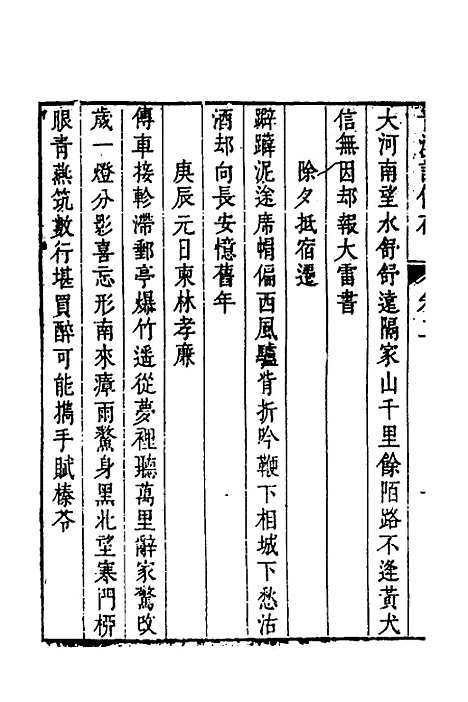 大河南望水舒舒遠隔家山千里餘陌路不逢黃犬
信無因却報大雷書
除夕抵宿遷
躃躃泥途席帽偏西風驢背折吟鞭下相城下愁沽
酒却向長安憶舊年
庚辰元日柬林孝廉
傳車接軫滯郵亭爆竹遥從夢裡聽萬里辭家驚改
歲一燈分影喜忘形南來瘴雨鰲身黑北望寒門
眼青燕筑數行堪買醉可能攜手賦榛苓